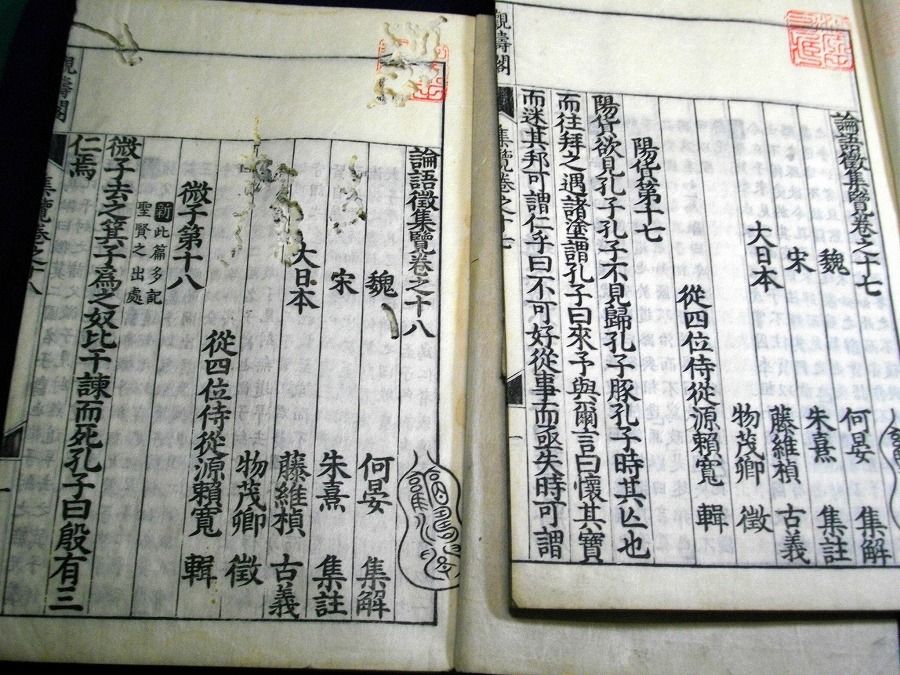 論語徵集覽卷之十七
魏 何晏 集解
宋 朱熹 集註
大日本 藤維楨 古義
物茂卿 徵
從四位侍從源賴寬 輯
陽貨第十七
陽貨欲見孔子孔子不見歸孔子豚孔子時其亾也
而往拜之遇諸塗謂孔子曰來予與爾言曰懷其寶
而迷其邦可謂仁乎曰不可好從事而亟失時可謂
觀濤閣
集覽卷之十七
一
論語徵集覽卷之十八
魏 何晏 集解
宋 朱熹 集註
大日本 藤維楨 古義
物茂卿 徵
從四位侍從源賴寬 輯
微子第十八
此篇多記
聖賢之出處
微子去之箕子爲之奴比干諫而死孔子曰殷有三
仁焉
觀濤閣
集覽卷之十八
一